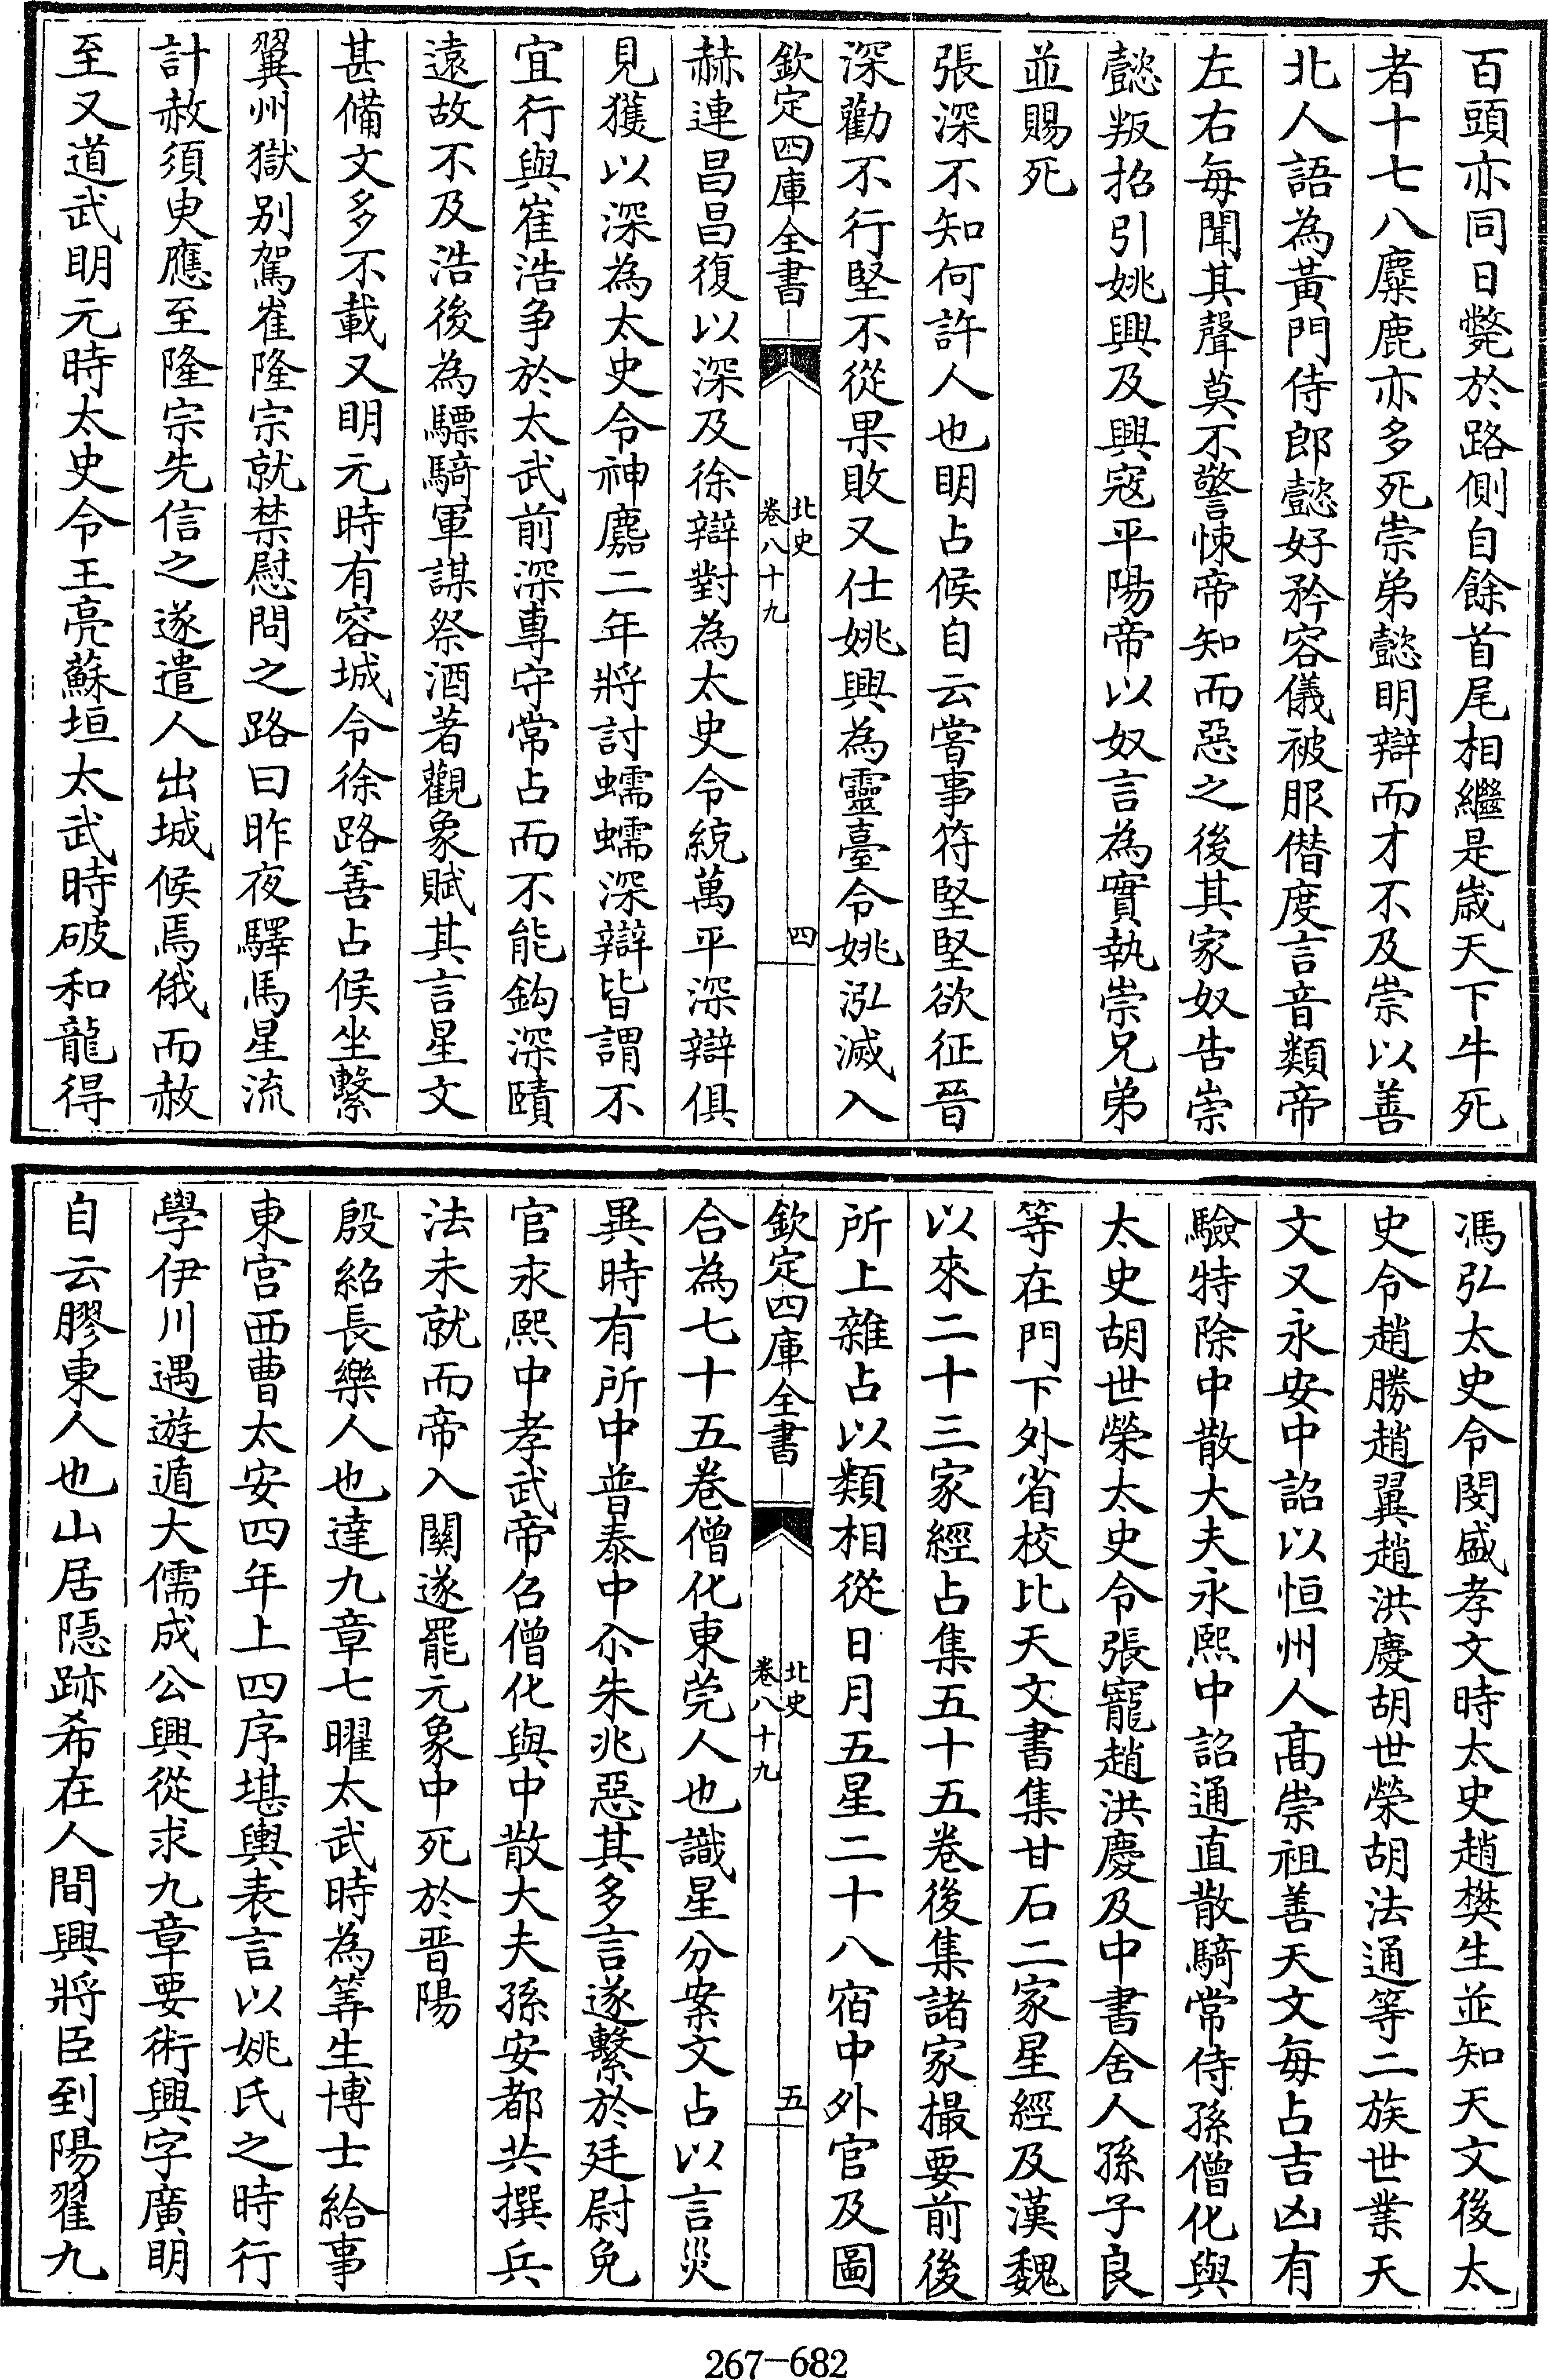 百頭亦同日斃於路側自餘首尾相繼是歲天下牛死
者十七八麋鹿亦多死崇弟懿明辯而才不及崇以善
北人語為黃門侍郎懿好矜容儀被服僭度言音類帝
左右每聞其聲莫不警悚帝知而惡之後其家奴告崇
懿叛招引姚興及興寇平陽帝以奴言為實執崇兄弟
並賜死
張深不知何許人也明占候自云嘗事符堅堅欲征晉
深勸不行堅不從果敗又仕姚興為靈臺令姚泓滅入
欽定四庫全書
北史
卷八十九
四
赫連昌昌復以深及徐辯對為太史令統萬平深辯俱
見獲以深為太史令神䴥二年將討蠕蠕深辯皆謂不
宜行與崔浩爭於太武前深專守常占而不能鈎深賾
遠故不及浩後為驃騎軍謀祭酒著觀象賦其言星文
甚備文多不載又明元時有容城令徐路善占候坐繫
冀州獄别駕崔隆宗就禁慰問之路曰昨夜驛馬星流
計赦須臾應至隆宗先信之遂遣人出城候焉俄而赦
至又道武明元時太史令王亮蘇垣太武時破和龍得
馮弘太史令閔盛孝文時太史趙樊生並知天文後太
史令趙勝趙翼趙洪慶胡世榮胡法通等二族世業天
文又永安中詔以恒州人髙崇祖善天文每占吉凶有
驗特除中散大夫永熙中詔通直散騎常侍孫僧化與
太史胡世榮太史令張寵趙洪慶及中書舍人孫子良
等在門下外省校比天文書集甘石二家星經及漢魏
以來二十三家經占集五十五卷後集諸家撮要前後
所上雜占以類相從日月五星二十八宿中外官及圖
欽定四庫全書
北史
卷八十九
五
合為七十五卷僧化東莞人也識星分案文占以言災
異時有所中普泰中尒朱兆惡其多言遂繫於廷尉免
官永熙中孝武帝召僧化與中散大夫孫安都共撰兵
法未就而帝入關遂罷元象中死於晋陽
殷紹長樂人也達九章七曜太武時為筭生博士給事
東宫西曹太安四年上四序堪輿表言以姚氏之時行
學伊川遇遊遁大儒成公興從求九章要術興字廣明
自云膠東人也山居隱跡希在人間興將臣到陽翟九
267-682